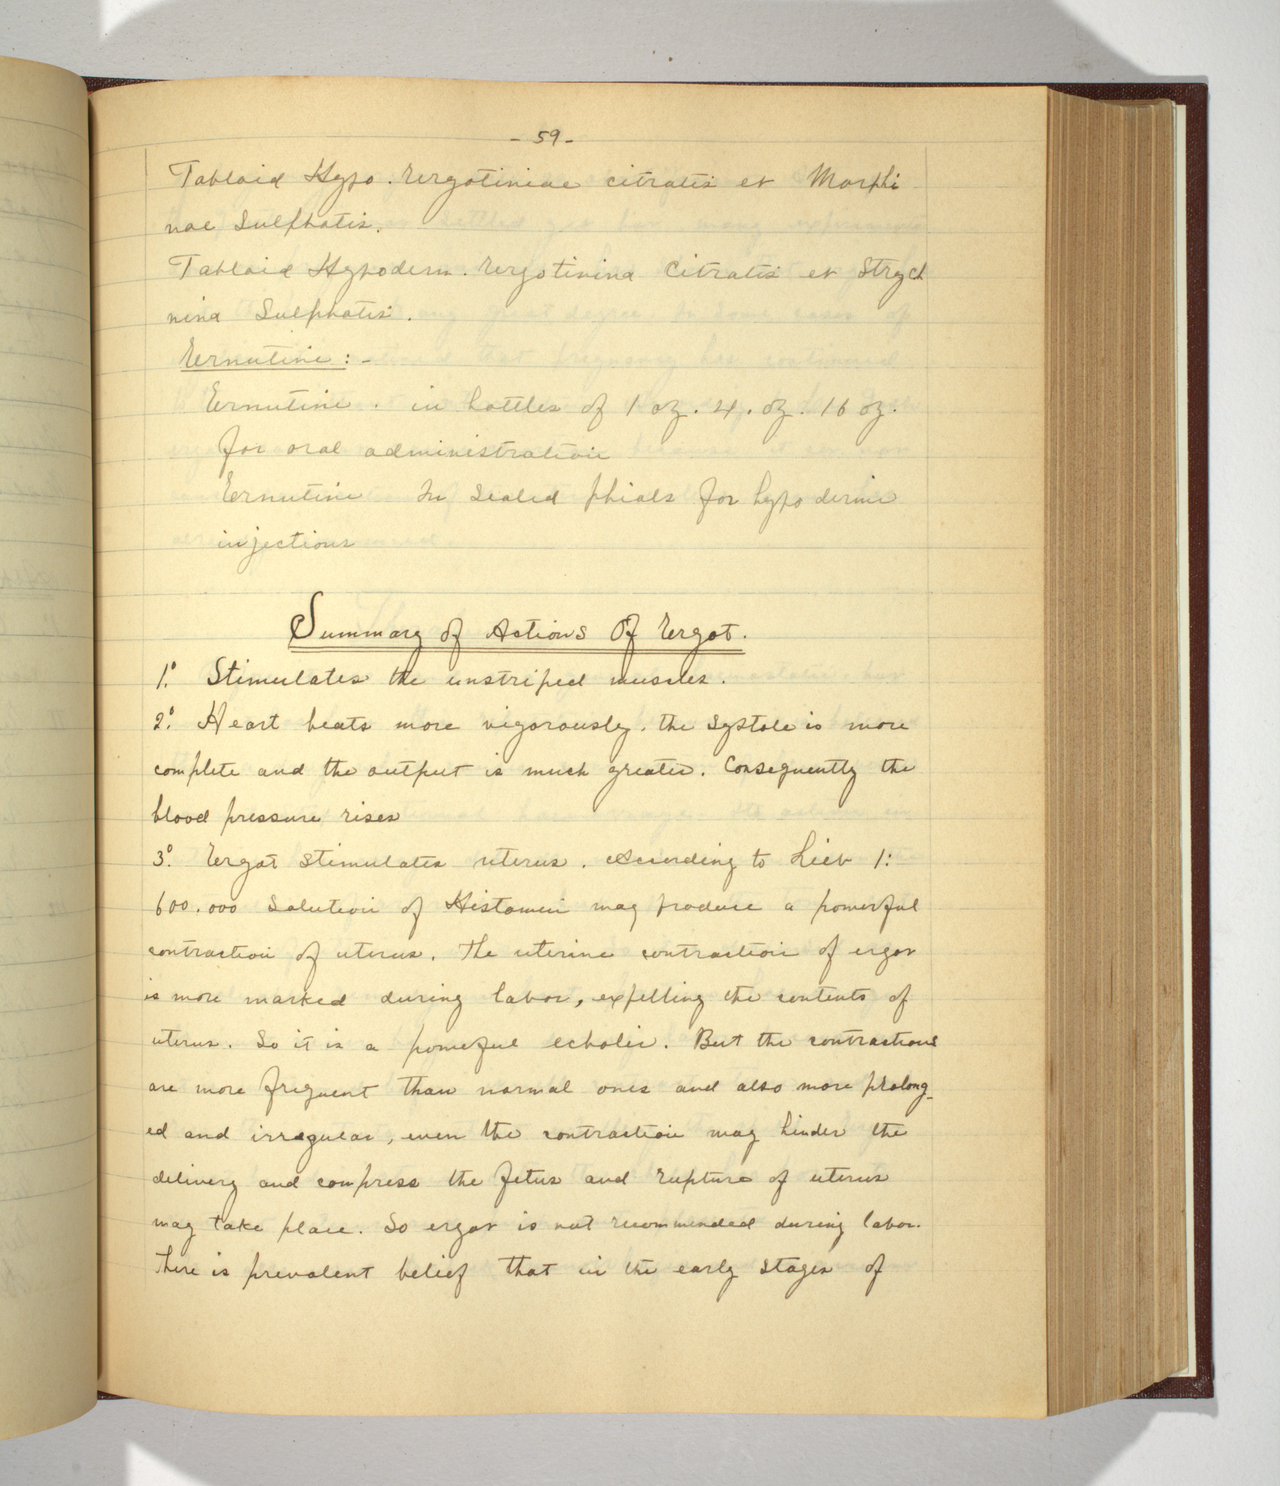 - 59 -
Tabloid Hypo. Ergotiniae citratis et Morphi
nae Sulphatis.
Tabloid Hypoderm. Ergotinina Citratis et Strych
nina Sulphatis.
Ernutine : -
Ernutine. in bottles of 1 oz. 4. oz. 16 oz.
for oral administration
Ernutine In Sealed phials for hypodermic
injections
Summary of Actions Of Ergot.
1º. Stimulates the unstriped muscles.
2º. Heart beats more vigorously. the systole is more
complete and the output is much greater. Consequently the
blood pressure rises
3º. Ergot stimulates uterus. According to Lieb 1:
600.000 Solution of Histamin may produce a powerful
contraction of uterus. The uterine contraction of ergot
is more marked during labor, expelling the contents of
uterus. So it is a powerful ecbolic. But the contractions
are more frequent than normal ones and also more prolong_
ed and irregular, even the contraction may hinder the
delivery and compress the fetus and rupture of uterus
may take place. So ergot is not recommended during labor.
There is prevalent belief that in the early stages of